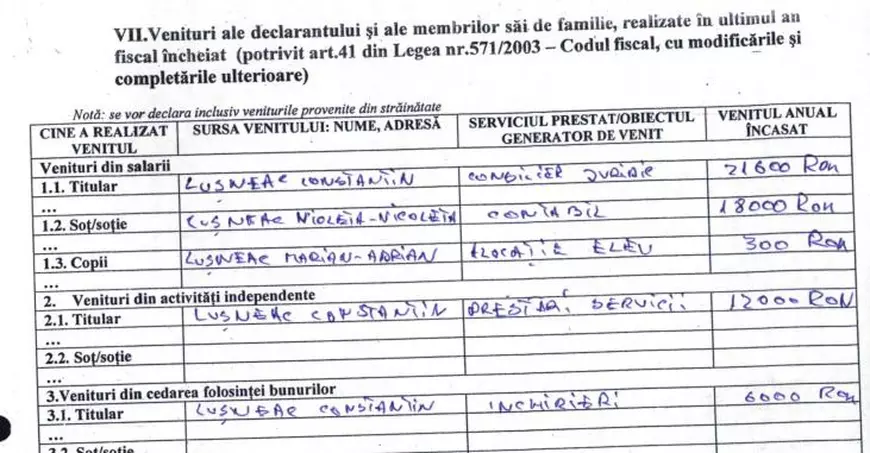 VII.Venituri ale declarantului și ale membrilor săi de familie, realizate în ultimul an
fiscal încheiat (potrivit art.41 din Legea nr.571/2003 – Codul fiscal, cu modificările și
completările ulterioare)
Notă: se vor declara inclusiv veniturile provenite din străinătate
CINE A REALIZAT VENITUL SURSA VENITULUI: NUME, ADRESĂ SERVICIUL PRESTAT/OBIECTUL GENERATOR DE VENIT VENITUL ANUAL ÎNCASAT
Venituri din salarii
1.1. Titular LUȘNEAC CONSTANTIN CONSILIER JURIDIC 21600 RON
...
1.2. Soț/soție LUȘNEAC NICOLETA-NICOLETA CONTABIL 18000 RON
...
1.3. Copii LUȘNEAC MARIAN-ADRIAN ALOCAȚIE ELEV 300 RON
...
2. Venituri din activități independente
2.1. Titular LUȘNEAC CONSTANTIN PRESTĂRI SERVICII 12000 RON
...
2.2. Soț/soție
...
3.Venituri din cedarea folosinței bunurilor
3.1. Titular LUȘNEAC CONSTANTIN INCHIRIERI 6000 RON
...
3.2. Soț/soție